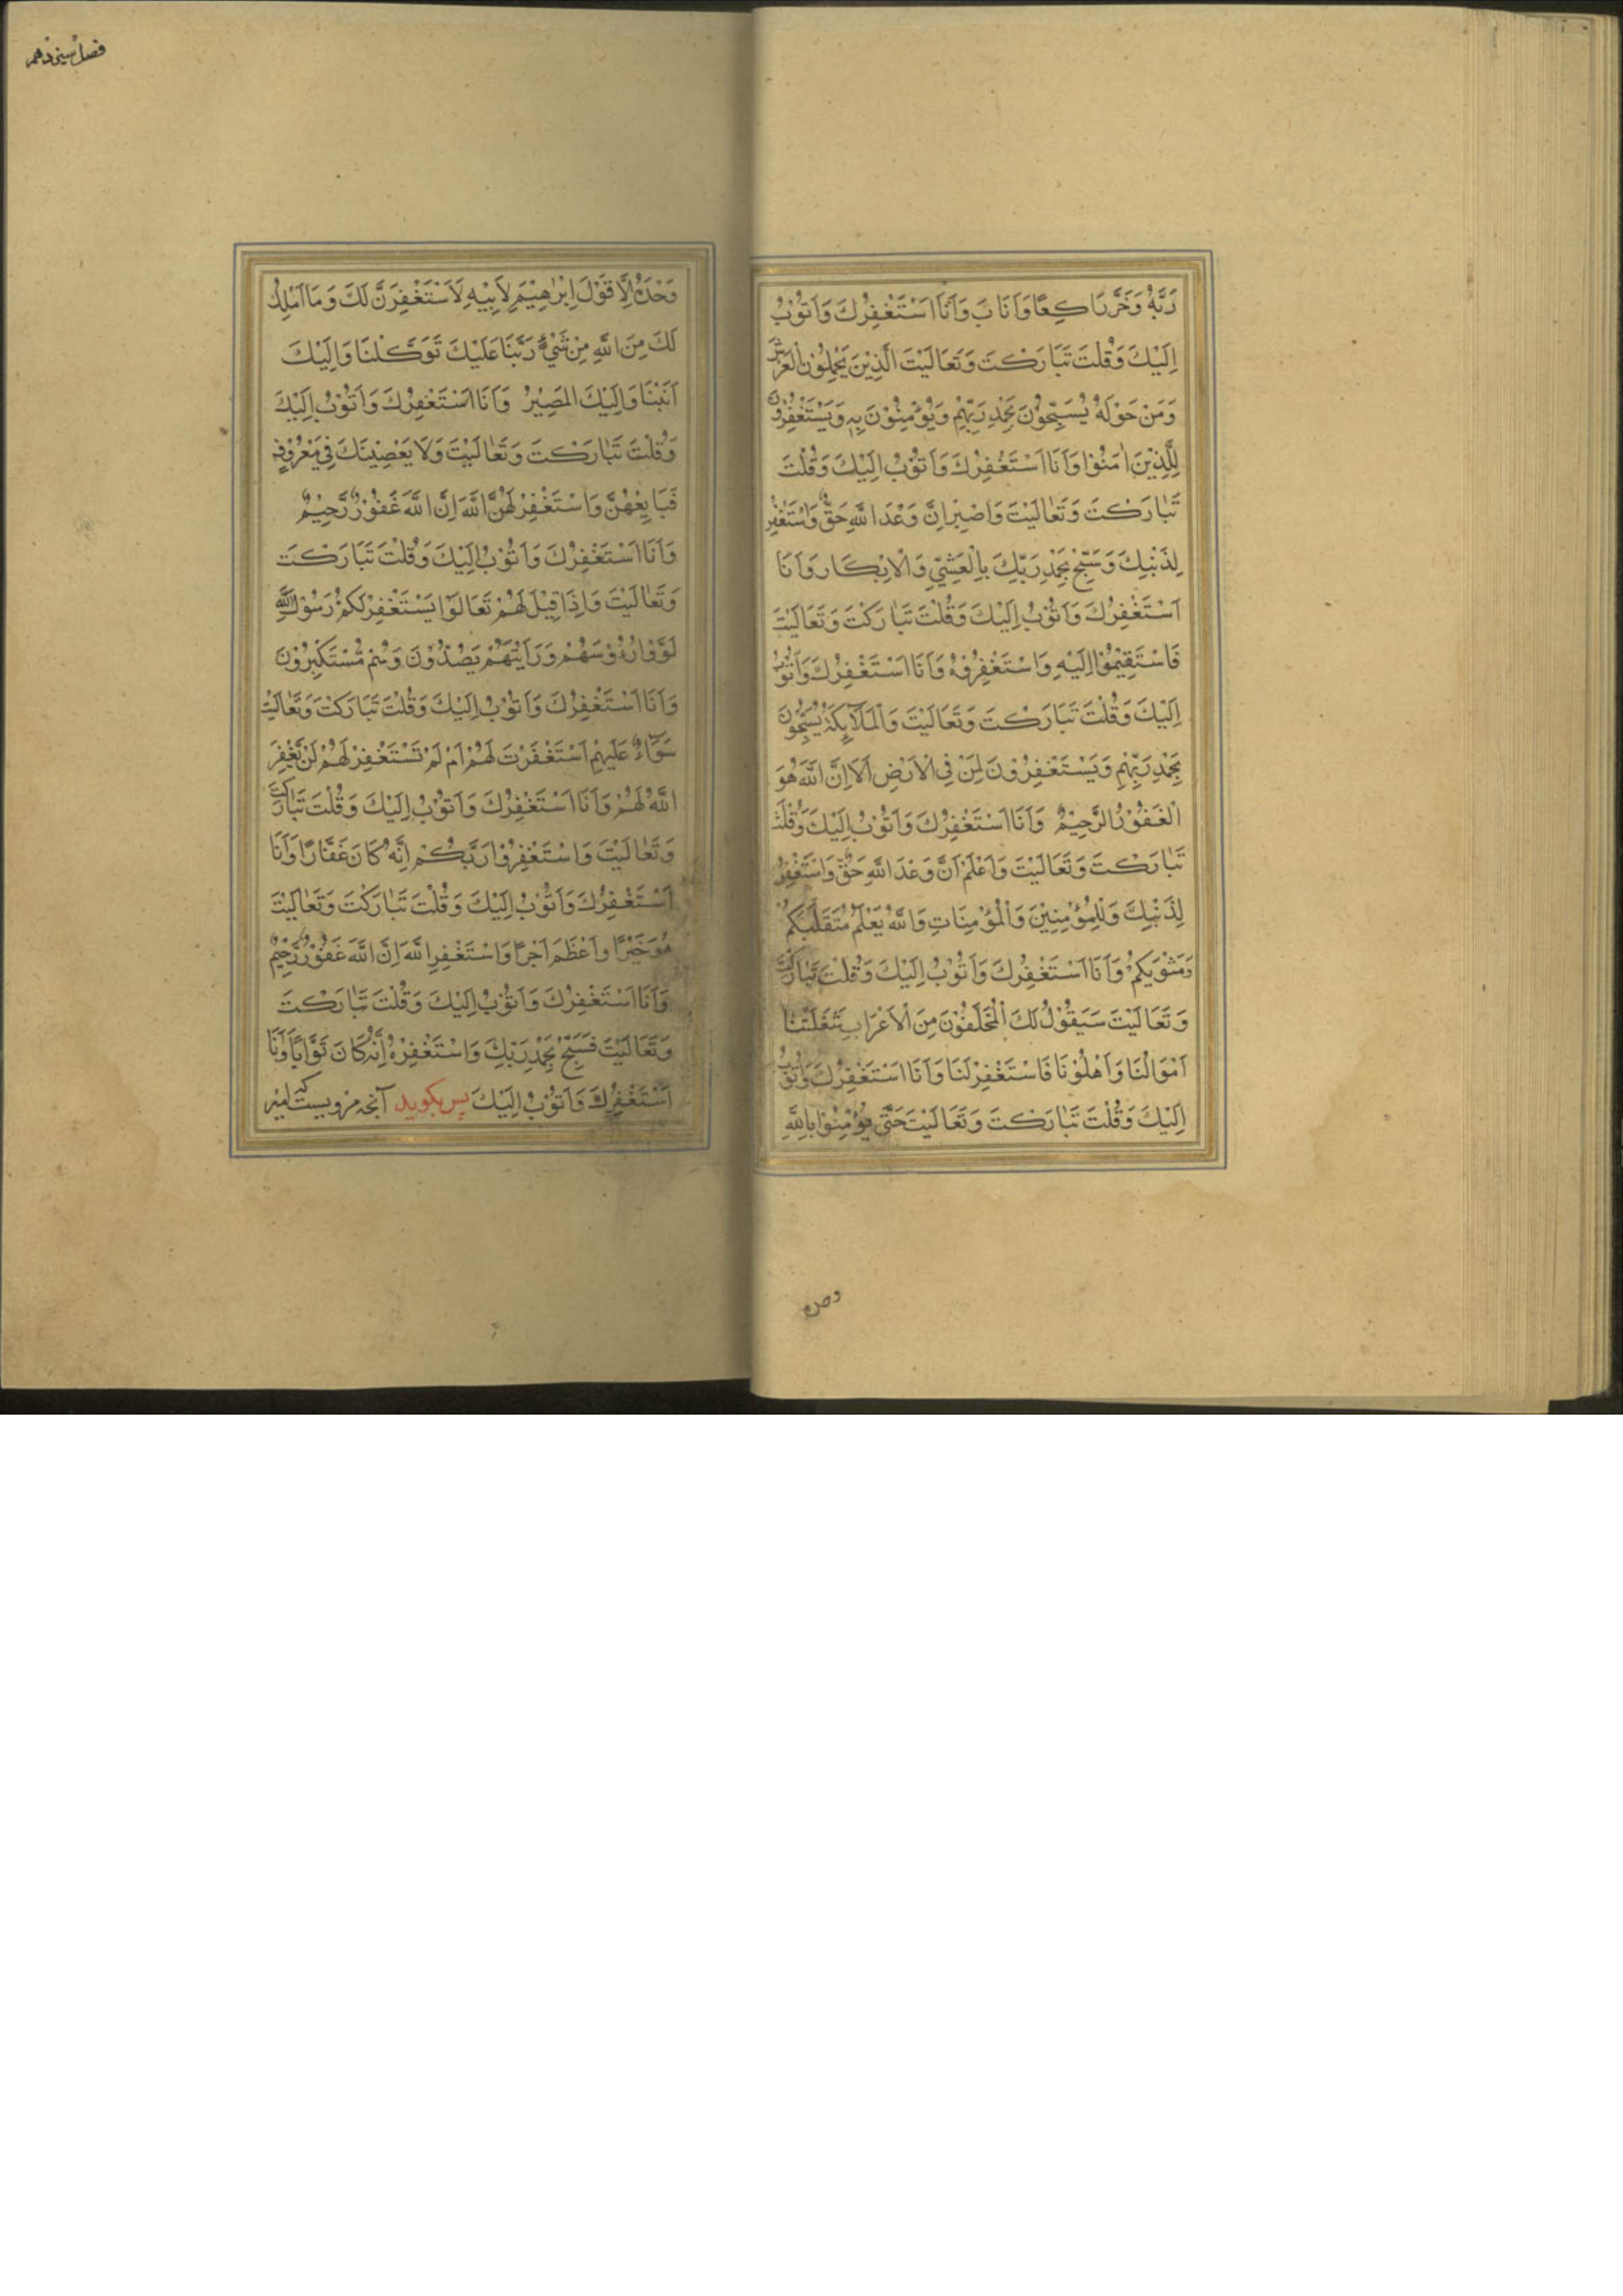 رَبَّهُ وَخَرَّ رَاكِعًا وَاَنَابَ وَاَنَا اَسْتَغْفِرُكَ وَاَتُوْبُ
اِلَيْكَ وَقُلْتَ تَبَارَكْتَ وَتَعَالَيْتَ الَّذِيْنَ يَحْمِلُوْنَ الْعَرْشَ
وَمَنْ حَوْلَهُ يُسَبِّحُوْنَ بِحَمْدِ رَبِّهِمْ وَيُؤْمِنُوْنَ بِهٖ وَيَسْتَغْفِرُوْنَ
لِلَّذِيْنَ اٰمَنُوْا وَاَنَا اَسْتَغْفِرُكَ وَاَتُوْبُ اِلَيْكَ وَقُلْتَ
تَبٰارَكْتَ وَتَعٰالَيْتَ وَاصْبِرْ اِنَّ وَعْدَ اللّٰهِ حَقٌّ وَاسْتَغْفِرْ
لِذَنْبِكَ وَسَبِّحْ بِحَمْدِ رَبِّكَ بِالْعَشِيِّ وَالْاِبْكَارِ وَاَنَا
اَسْتَغْفِرُكَ وَاَتُوْبُ اِلَيْكَ وَقُلْتَ تَبٰارَكْتَ وَتَعَالَيْتَ
فَاسْتَقِيْمُوْا اِلَيْهِ وَاسْتَغْفِرُوْهُ وَاَنَا اَسْتَغْفِرُكَ وَاَتُوْبُ
اِلَيْكَ وَقُلْتَ تَبَارَكْتَ وَتَعَالَيْتَ وَالْمَلَآئِكَةُ يُسَبِّحُوْنَ
بِحَمْدِ رَبِّهِمْ وَيَسْتَغْفِرُوْنَ لِمَنْ فِي الْاَرْضِ اَلَا اِنَّ اللّٰهَ هُوَ
الْغَفُوْرُ الرَّحِيْمُ وَاَنَا اَسْتَغْفِرُكَ وَاَتُوْبُ اِلَيْكَ وَقُلْتَ
تَبٰارَكْتَ وَتَعَالَيْتَ وَاعْلَمْ اَنَّ وَعْدَ اللّٰهِ حَقٌّ وَاسْتَغْفِرْ
لِذَنْبِكَ وَلِلْمُؤْمِنِيْنَ وَالْمُؤْمِنَاتِ وَاللّٰهُ يَعْلَمُ مُتَقَلَّبَكُمْ
وَمَثْوٰيكُمْ وَاَنَا اَسْتَغْفِرُكَ وَاَتُوْبُ اِلَيْكَ وَقُلْتَ تَبٰارَكْتَ
وَتَعَالَيْتَ سَيَقُوْلُ لَكَ الْمُخَلَّفُوْنَ مِنَ الْاَعْرَابِ شَغَلَتْنَا
اَمْوَالُنَا وَاَهْلُوْنَا فَاسْتَغْفِرْ لَنَا وَاَنَا اَسْتَغْفِرُكَ وَاَتُوْبُ
اِلَيْكَ وَقُلْتَ تَبٰارَكْتَ وَتَعَالَيْتَ حَتّٰى يُؤْمِنُوْا بِاللّٰهِ
وحده
فصل سیزدهم
وَحْدَهُ اِلَّا قَوْلَ اِبْرٰهِيْمَ لِاَبِيْهِ لَاَسْتَغْفِرَنَّ لَكَ وَمَا اَمْلِكُ
لَكَ مِنَ اللّٰهِ مِنْ شَيْءٍ رَبَّنَا عَلَيْكَ تَوَكَّلْنَا وَاِلَيْكَ
اَنَبْنَا وَاِلَيْكَ الْمَصِيْرُ وَاَنَا اَسْتَغْفِرُكَ وَاَتُوْبُ اِلَيْكَ
وَقُلْتَ تَبٰارَكْتَ وَتَعٰالَيْتَ وَلَا يَعْصِيْنَكَ فِيْ مَعْرُوْفٍ
فَبَايِعْهُنَّ وَاسْتَغْفِرْ لَهُنَّ اللّٰهَ اِنَّ اللّٰهَ غَفُوْرٌ رَّحِيْمٌ
وَاَنَا اَسْتَغْفِرُكَ وَاَتُوْبُ اِلَيْكَ وَقُلْتَ تَبَارَكْتَ
وَتَعٰالَيْتَ وَاِذَا قِيْلَ لَهُمْ تَعَالَوْا يَسْتَغْفِرْ لَكُمْ رَسُوْلُ اللّٰهِ
لَوَّوْا رُءُوْسَهُمْ وَرَاَيْتَهُمْ يَصُدُّوْنَ وَهُمْ مُّسْتَكْبِرُوْنَ
وَاَنَا اَسْتَغْفِرُكَ وَاَتُوْبُ اِلَيْكَ وَقُلْتَ تَبَارَكْتَ وَتَعٰالَيْتَ
سَوَآءٌ عَلَيْهِمْ اَسْتَغْفَرْتَ لَهُمْ اَمْ لَمْ تَسْتَغْفِرْ لَهُمْ لَنْ يَّغْفِرَ
اللّٰهُ لَهُمْ وَاَنَا اَسْتَغْفِرُكَ وَاَتُوْبُ اِلَيْكَ وَقُلْتَ تَبٰارَكْتَ
وَتَعٰالَيْتَ وَاسْتَغْفِرُوْا رَبَّكُمْ اِنَّهُ كَانَ غَفَّارًا وَاَنَا
اَسْتَغْفِرُكَ وَاَتُوْبُ اِلَيْكَ وَقُلْتَ تَبٰارَكْتَ وَتَعٰالَيْتَ
هُوَ خَيْرًا وَاَعْظَمَ اَجْرًا وَاسْتَغْفِرِ اللّٰهَ اِنَّ اللّٰهَ غَفُوْرٌ رَّحِيْمٌ
وَاَنَا اَسْتَغْفِرُكَ وَاَتُوْبُ اِلَيْكَ وَقُلْتَ تَبٰارَكْتَ
وَتَعَالَيْتَ فَسَبِّحْ بِحَمْدِ رَبِّكَ وَاسْتَغْفِرْهُ اِنَّهُ كَانَ تَوَّابًا وَاَنَا
اَسْتَغْفِرُكَ وَاَتُوْبُ اِلَيْكَ پس بگوید آنچه مرویست که